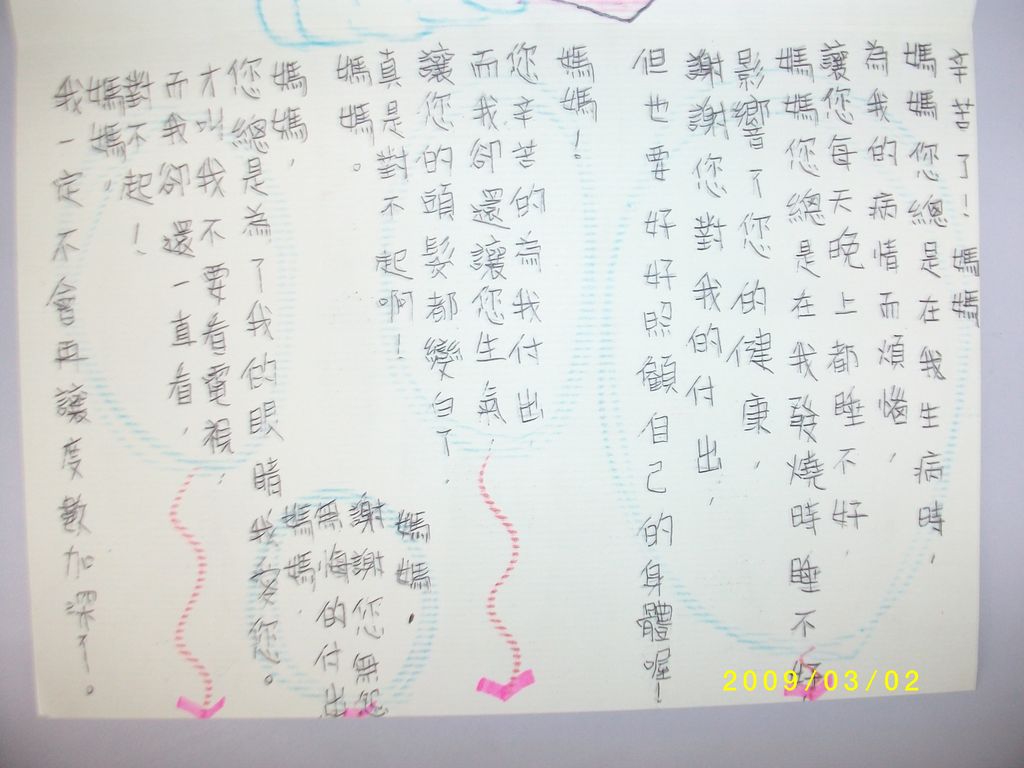 辛苦了！媽媽
媽媽您總是在我生病時，
為我的病情而煩惱，
讓您每天晚上都睡不好，
媽媽您總是在我發燒時睡不好
影響了您的健康，
謝謝您對我的付出，
但也要好好照顧自己的身體喔！
媽媽！
您辛苦的為我付出，
而我卻還讓您生氣，
讓您的頭髮都變白了，
真是對不起啊！
媽媽。
媽媽，
您總是為了我的眼睛
才叫我不要看電視，
而我卻還一直看，
對不起！
媽媽，
我一定不會再讓度數加深了。
媽媽，
謝謝您無怨
無悔的付出
媽媽，
我愛您。
2009/03/02